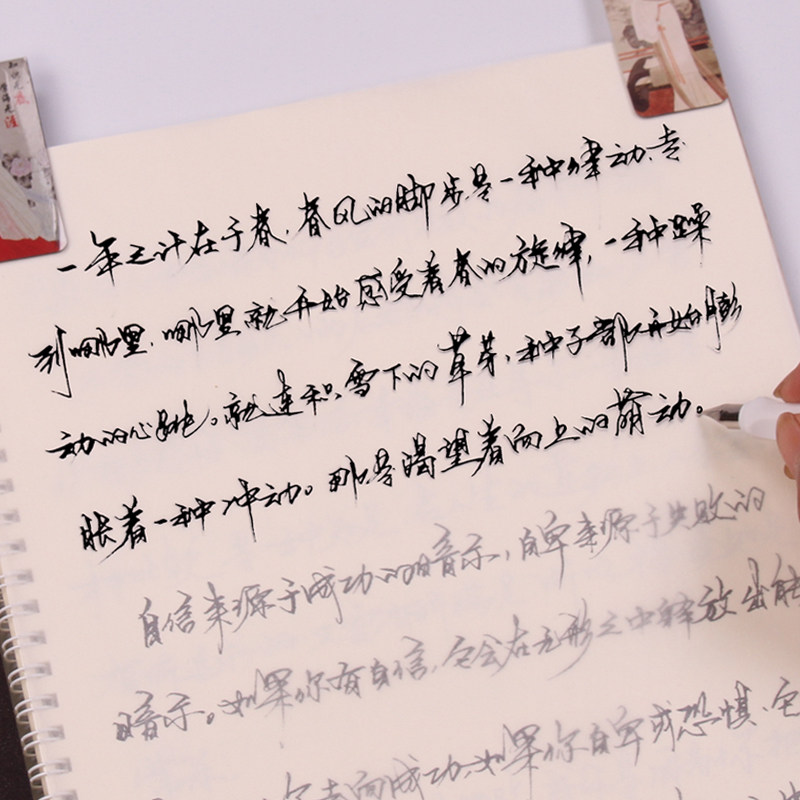 一年之计在于春,春风的脚步是一种律动,走
到哪里,哪里就开始感受着春的旋律,一种躁
动的心跳。就连积雪下的草芽,种子都开始膨
胀着一种冲动。那是渴望着向上的萌动。
自信来源于成功的暗示,自卑来源于失败的
暗示。如果你有自信,它会在无形之中释放出能
你走向成功,如果你自卑或恐惧,它